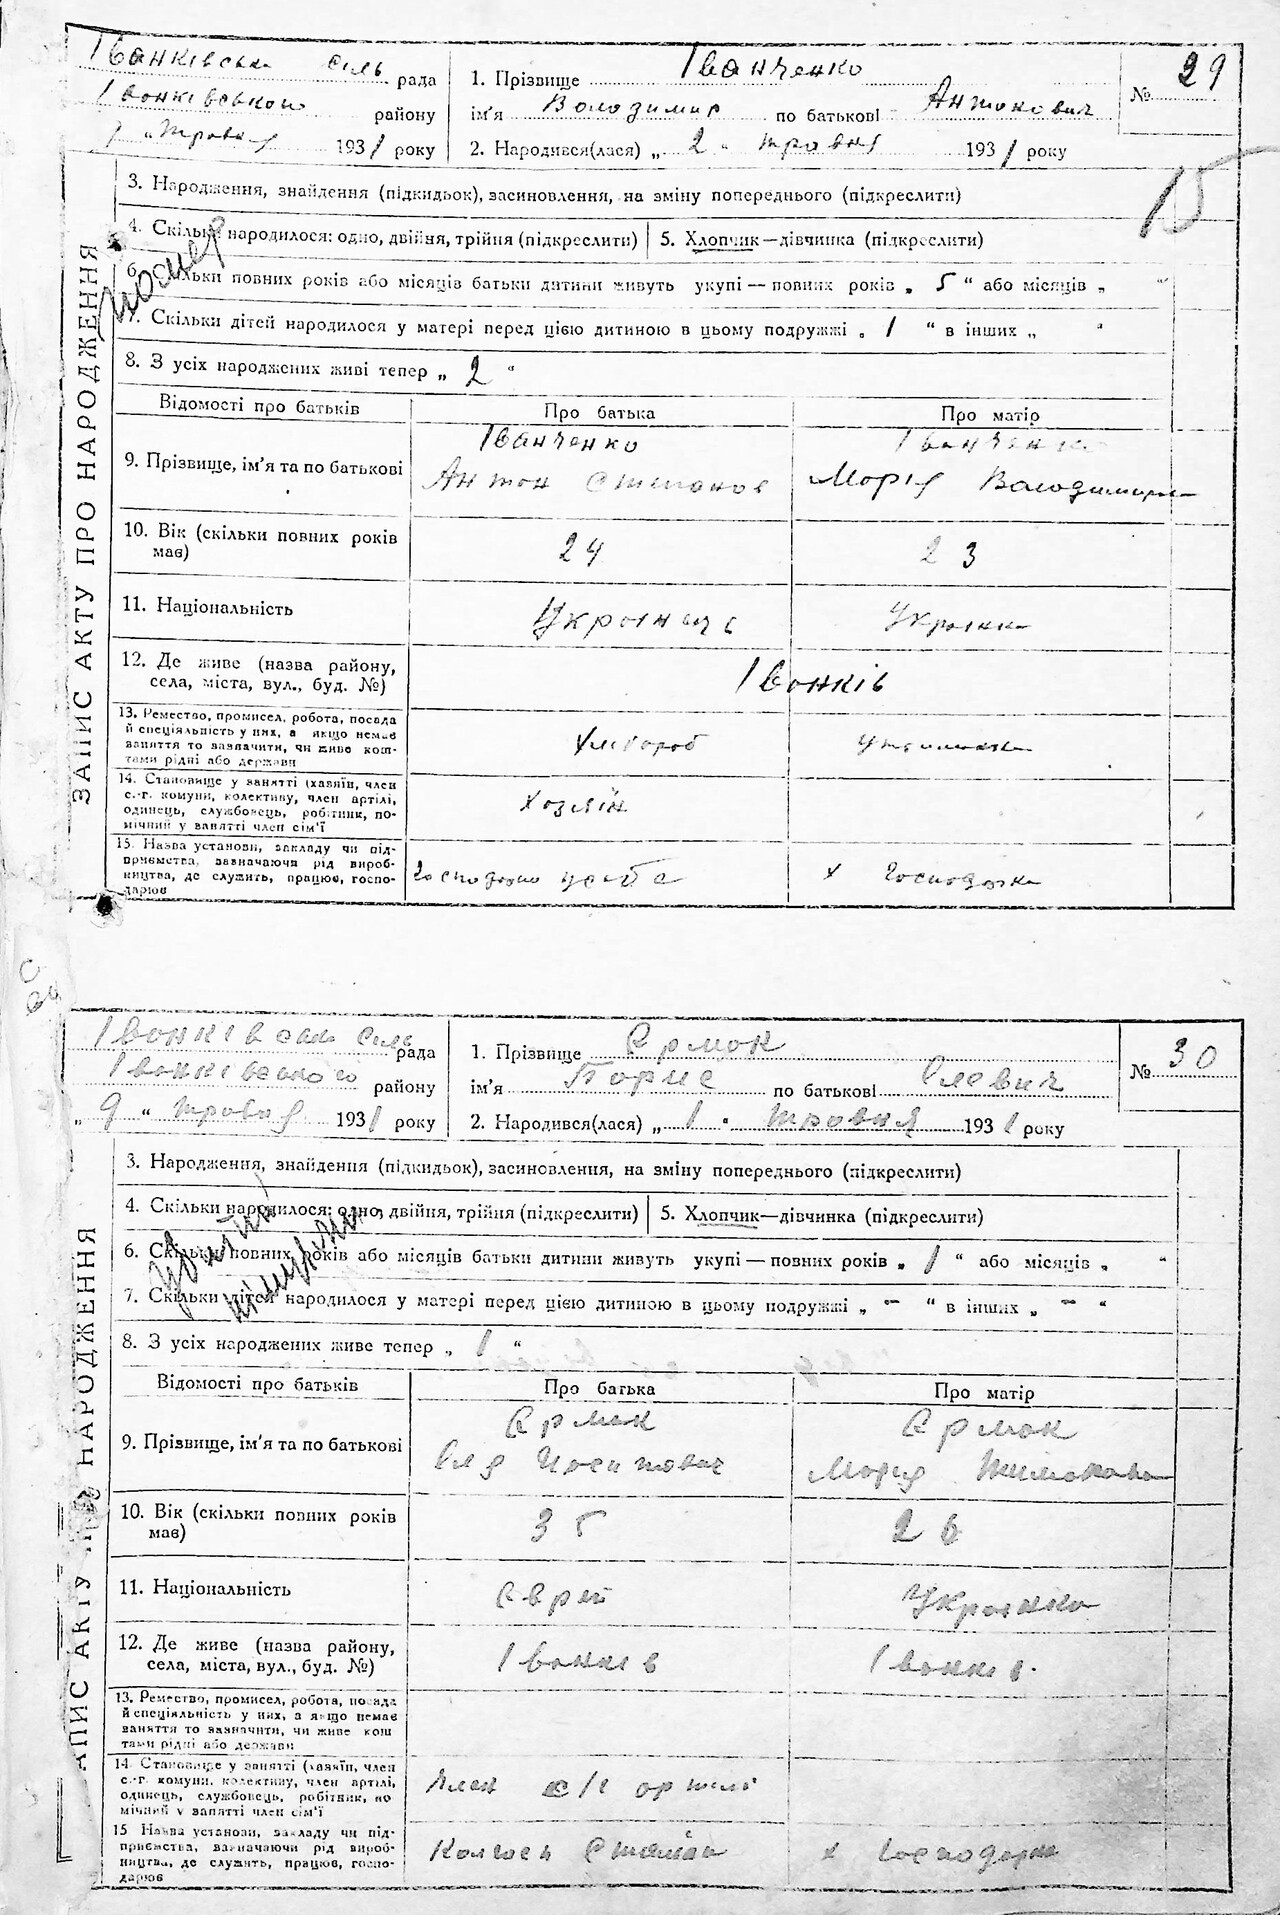 Іванківська сіль рада
Іванківського району
9 „ травня 1931 року
1. Прізвище Іванченко
ім'я Володимир по батькові Антонович
2. Народився(лася) „ 2 " травня 1931 року
№ 29
15
ЗАПИС АКТУ ПРО НАРОДЖЕННЯ
3. Народження, знайдення (підкидьок), засиновлення, на зміну попереднього (підкреслити)
4. Скільки народилося: одно, двійня, трійня (підкреслити)
5. Хлопчик—дівчинка (підкреслити)
6. Скільки повних років або місяців батьки дитини живуть укупі — повних років „ 5 " або місяців „ "
7. Скільки дітей народилося у матері перед цією дитиною в цьому подружжі „ 1 " в інших „ "
8. З усіх народжених живі тепер „ 2 "
Відомості про батьків
Про батька
Про матір
9. Прізвище, ім'я та по батькові
Іванченко
Антон Степанов
Іванченко
Марія Володимир
10. Вік (скільки повних років
має)
24
23
11. Національність
Українець
Українка
12. Де живе (назва району,
села, міста, вул., буд. №)
Іванків
13. Ремество, промисел, робота, посада
й спеціяльність у них, а якщо немає
заняття то зазначити, чи живе кош-
тами рідні або держави
Хлібороб
14. Становище у занятті (хазяїн, член
с.-г. комуни, колективу, член артілі,
одинець, службовець, робітник, по-
мічний у занятті член сім'ї
Хозяїн
15. Назва установи, закладу чи під-
приємства, зазначаючи рід вироб-
ництва, де служить, працює, госпо-
дарює
х Господарка
Іванківська сіль рада
Іванківського району
„ 9 " травня 1931 року
1. Прізвище Єрмак
ім'я Борис по батькові Ілевич
2. Народився(лася) „ 1 " травня 1931 року
№ 30
ЗАПИС АКТУ ПРО НАРОДЖЕННЯ
3. Народження, знайдення (підкидьок), засиновлення, на зміну попереднього (підкреслити)
4. Скільки народилося: одно, двійня, трійня (підкреслити)
5. Хлопчик—дівчинка (підкреслити)
6. Скільки повних років або місяців батьки дитини живуть укупі — повних років „ 1 " або місяців „ "
7. Скільки дітей народилося у матері перед цією дитиною в цьому подружжі „ — " в інших „ — "
8. З усіх народжених живе тепер „ 1 "
Відомості про батьків
Про батька
Про матір
9. Прізвище, ім'я та по батькові
Єрмак
Ілля Йосипович
Єрмак
Марія Тимохвівна
10. Вік (скільки повних років
має)
35
26
11. Національність
Єврей
Українка
12. Де живе (назва району,
села, міста, вул., буд. №)
Іванків
Іванків
13. Ремество, промисел, робота, посада
й спеціяльність у них, а якщо немає
заняття то зазначити, чи живе кош
тами рідні або держави
14. Становище у занятті (хазяїн, член
с.-г. комуни, колективу, член артілі,
одинець, службовець, робітник, по
мічний у занятті член сім'ї
Член с/г артілі
15 Назва установи, закладу чи під-
приємства, зазначаючи рід вироб-
ництва, де служить, працює, госпо-
дарює
х Господарка